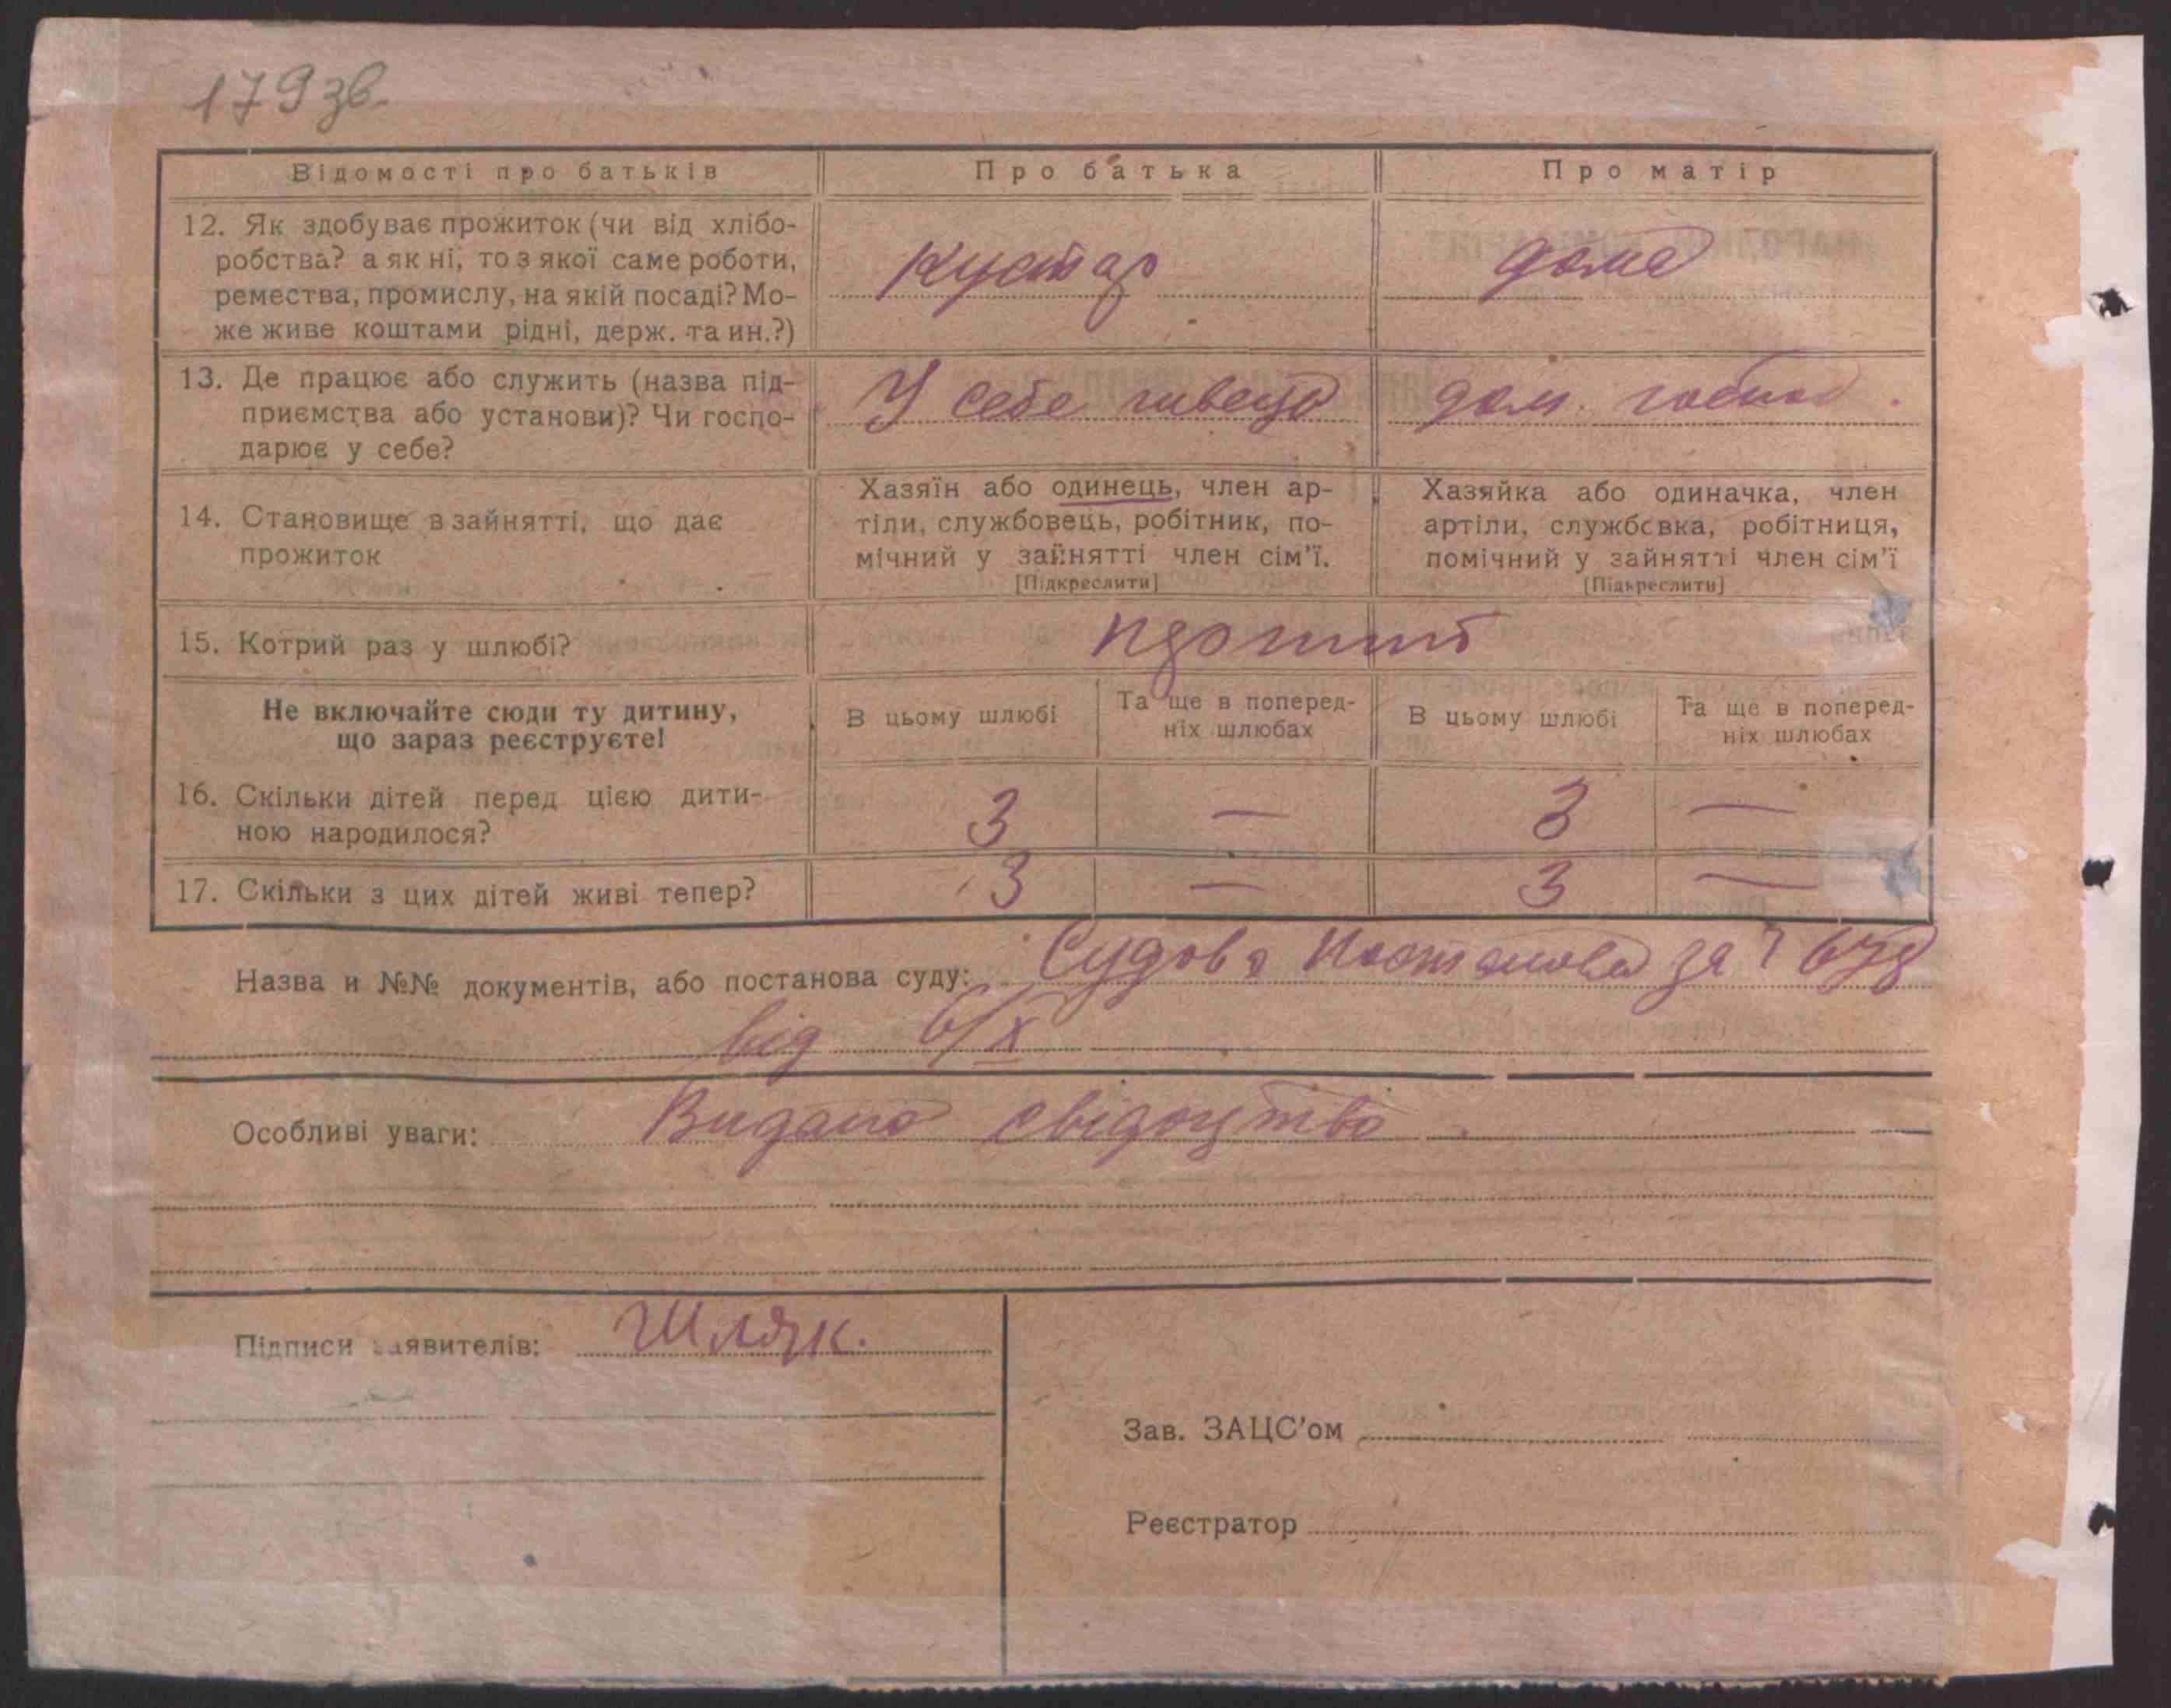 179 зв.
Відомості про батьків
Про батька
Про матір
12. Як здобуває прожиток (чи від хлібо-
робства? а як ні, то з якої саме роботи,
ремества, промислу, на якій посаді? Мо-
же живе коштами рідні, держ. та ин.?)
Кустар
дома
13. Де працює або служить (назва під-
приємства або установи)? Чи госпо-
дарює у себе?
У себе швець
дом. господ.
14. Становище в зайнятті, що дає
прожиток
Хазяїн або одинець, член ар-
тіли, службовець, робітник, по-
мічний у зайнятті член сім'ї.
[Підкреслити]
Хазяйка або одиначка, член
артіли, службовка, робітниця,
помічний у зайнятті член сім'ї
[Підкреслити]
15. Котрий раз у шлюбі?
Не включайте сюди ту дитину,
що зараз реєструєте!
В цьому шлюбі
Та ще в поперед-
ніх шлюбах
В цьому шлюбі
Та ще в поперед-
ніх шлюбах
16. Скільки дітей перед цією дити-
ною народилося?
3 — 3 —
17. Скільки з цих дітей живі тепер?
3 — 3 —
Назва и №№ документів, або постанова суду: Судова постанова за
від 6/X
Особливі уваги: Видано свідоцтво
Підписи заявителів: Шляк.
Зав. ЗАЦС'ом
Реєстратор